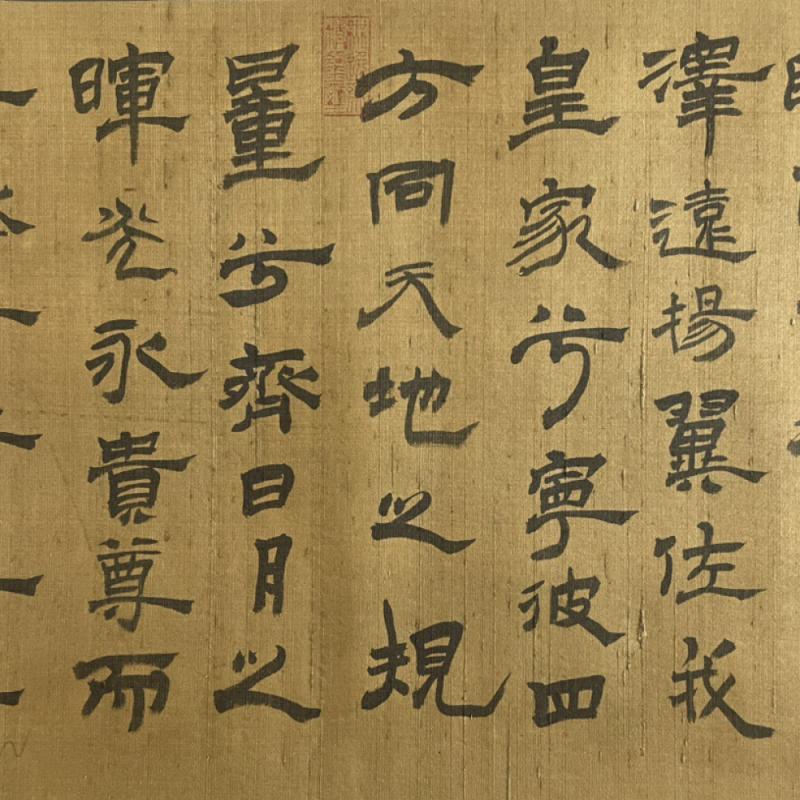 澤遠揚翼佐我
皇家兮寧彼四
方同天地之規
量兮齊日月之
暉光永貴尊而